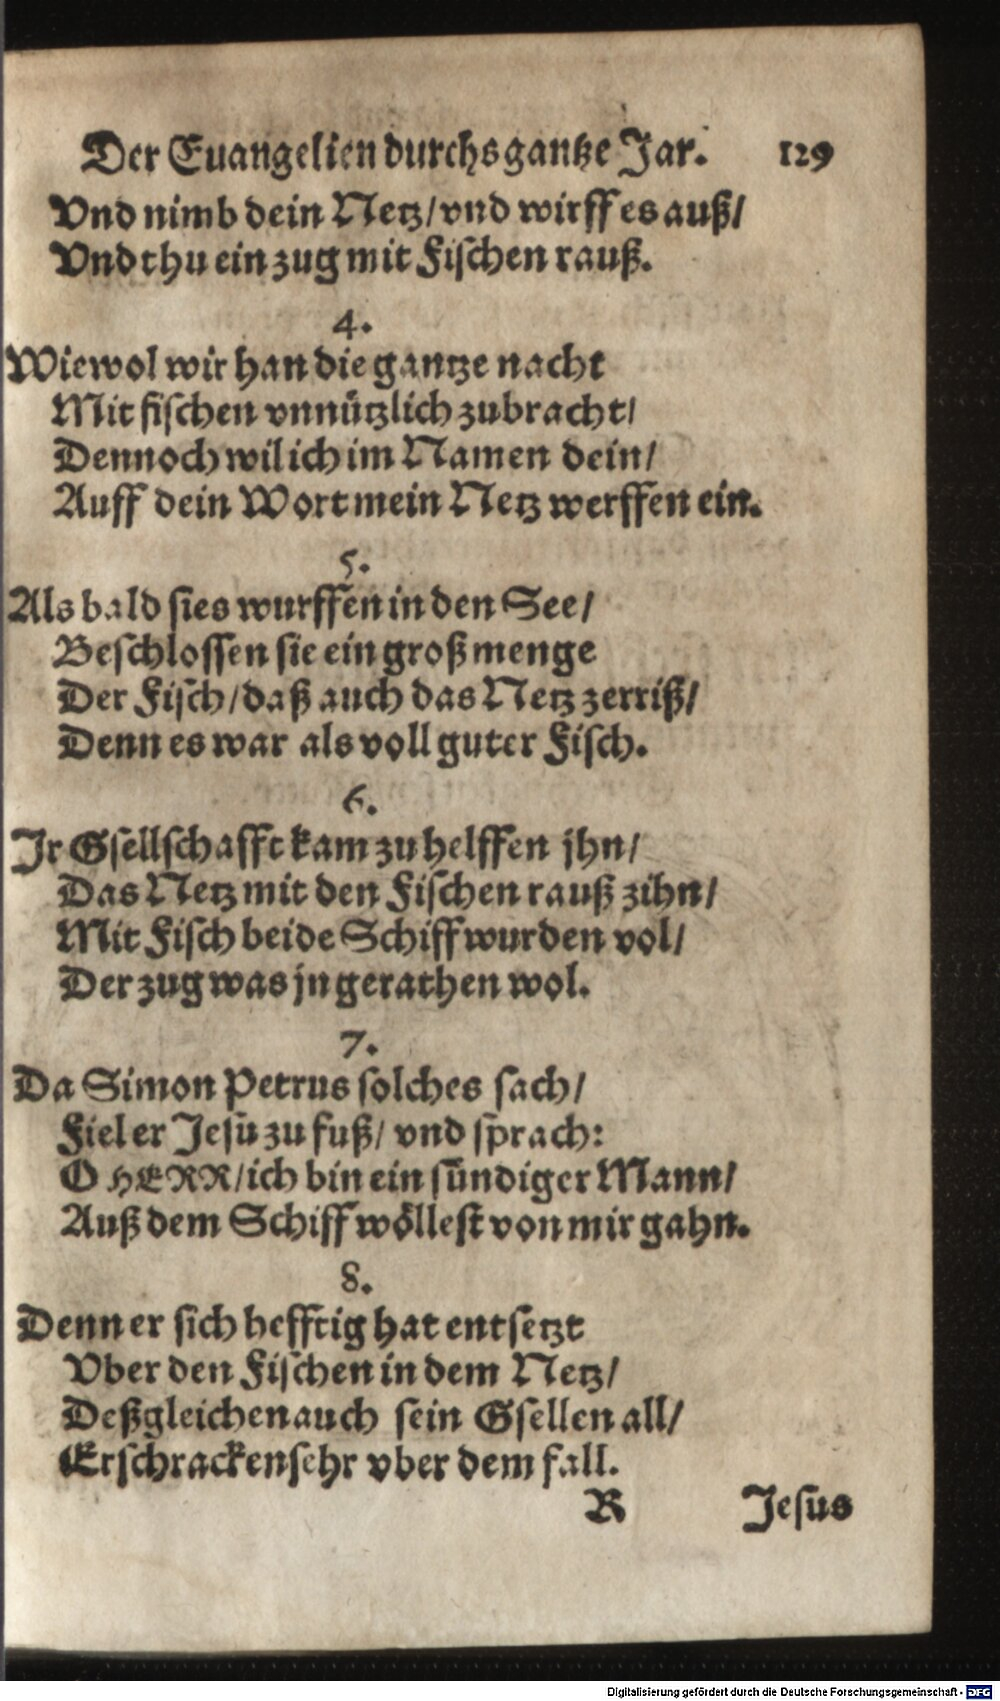 Der Euangelien durchs gantze Jar. 129
Vnd nimb dein Netz/ vnd wirff es auß/
Vnd thu ein zug mit Fischen rauß.
4.
Wiewol wir han die gantze nacht
Mit fischen vnnützlich zubracht/
Dennoch wil ich im Namen dein/
Auff dein Wort mein Netz werffen ein.
5.
Als bald sies wurffen in den See/
Beschlossen sie ein groß menge
Der Fisch/ daß auch das Netz zerriß/
Denn es war als voll guter Fisch.
6.
Jr Gsellschafft kam zu helffen jhn/
Das Netz mit den Fischen rauß zihn/
Mit Fisch beide Schiff wurden vol/
Der zug was jn gerathen wol.
7.
Da Simon Petrus solches sach/
Fiel er Jesu zu fuß/ vnd sprach:
O HERR/ ich bin ein sündiger Mann/
Auß dem Schiff wöllest von mir gahn.
8.
Denn er sich hefftig hat entsetzt
Vber den Fischen in dem Netz/
Deßgleichen auch sein Gsellen all/
Erschracken sehr vber dem fall.
R Jesus
Digitalisierung gefördert durch die Deutsche Forschungsgemeinschaft - DFG